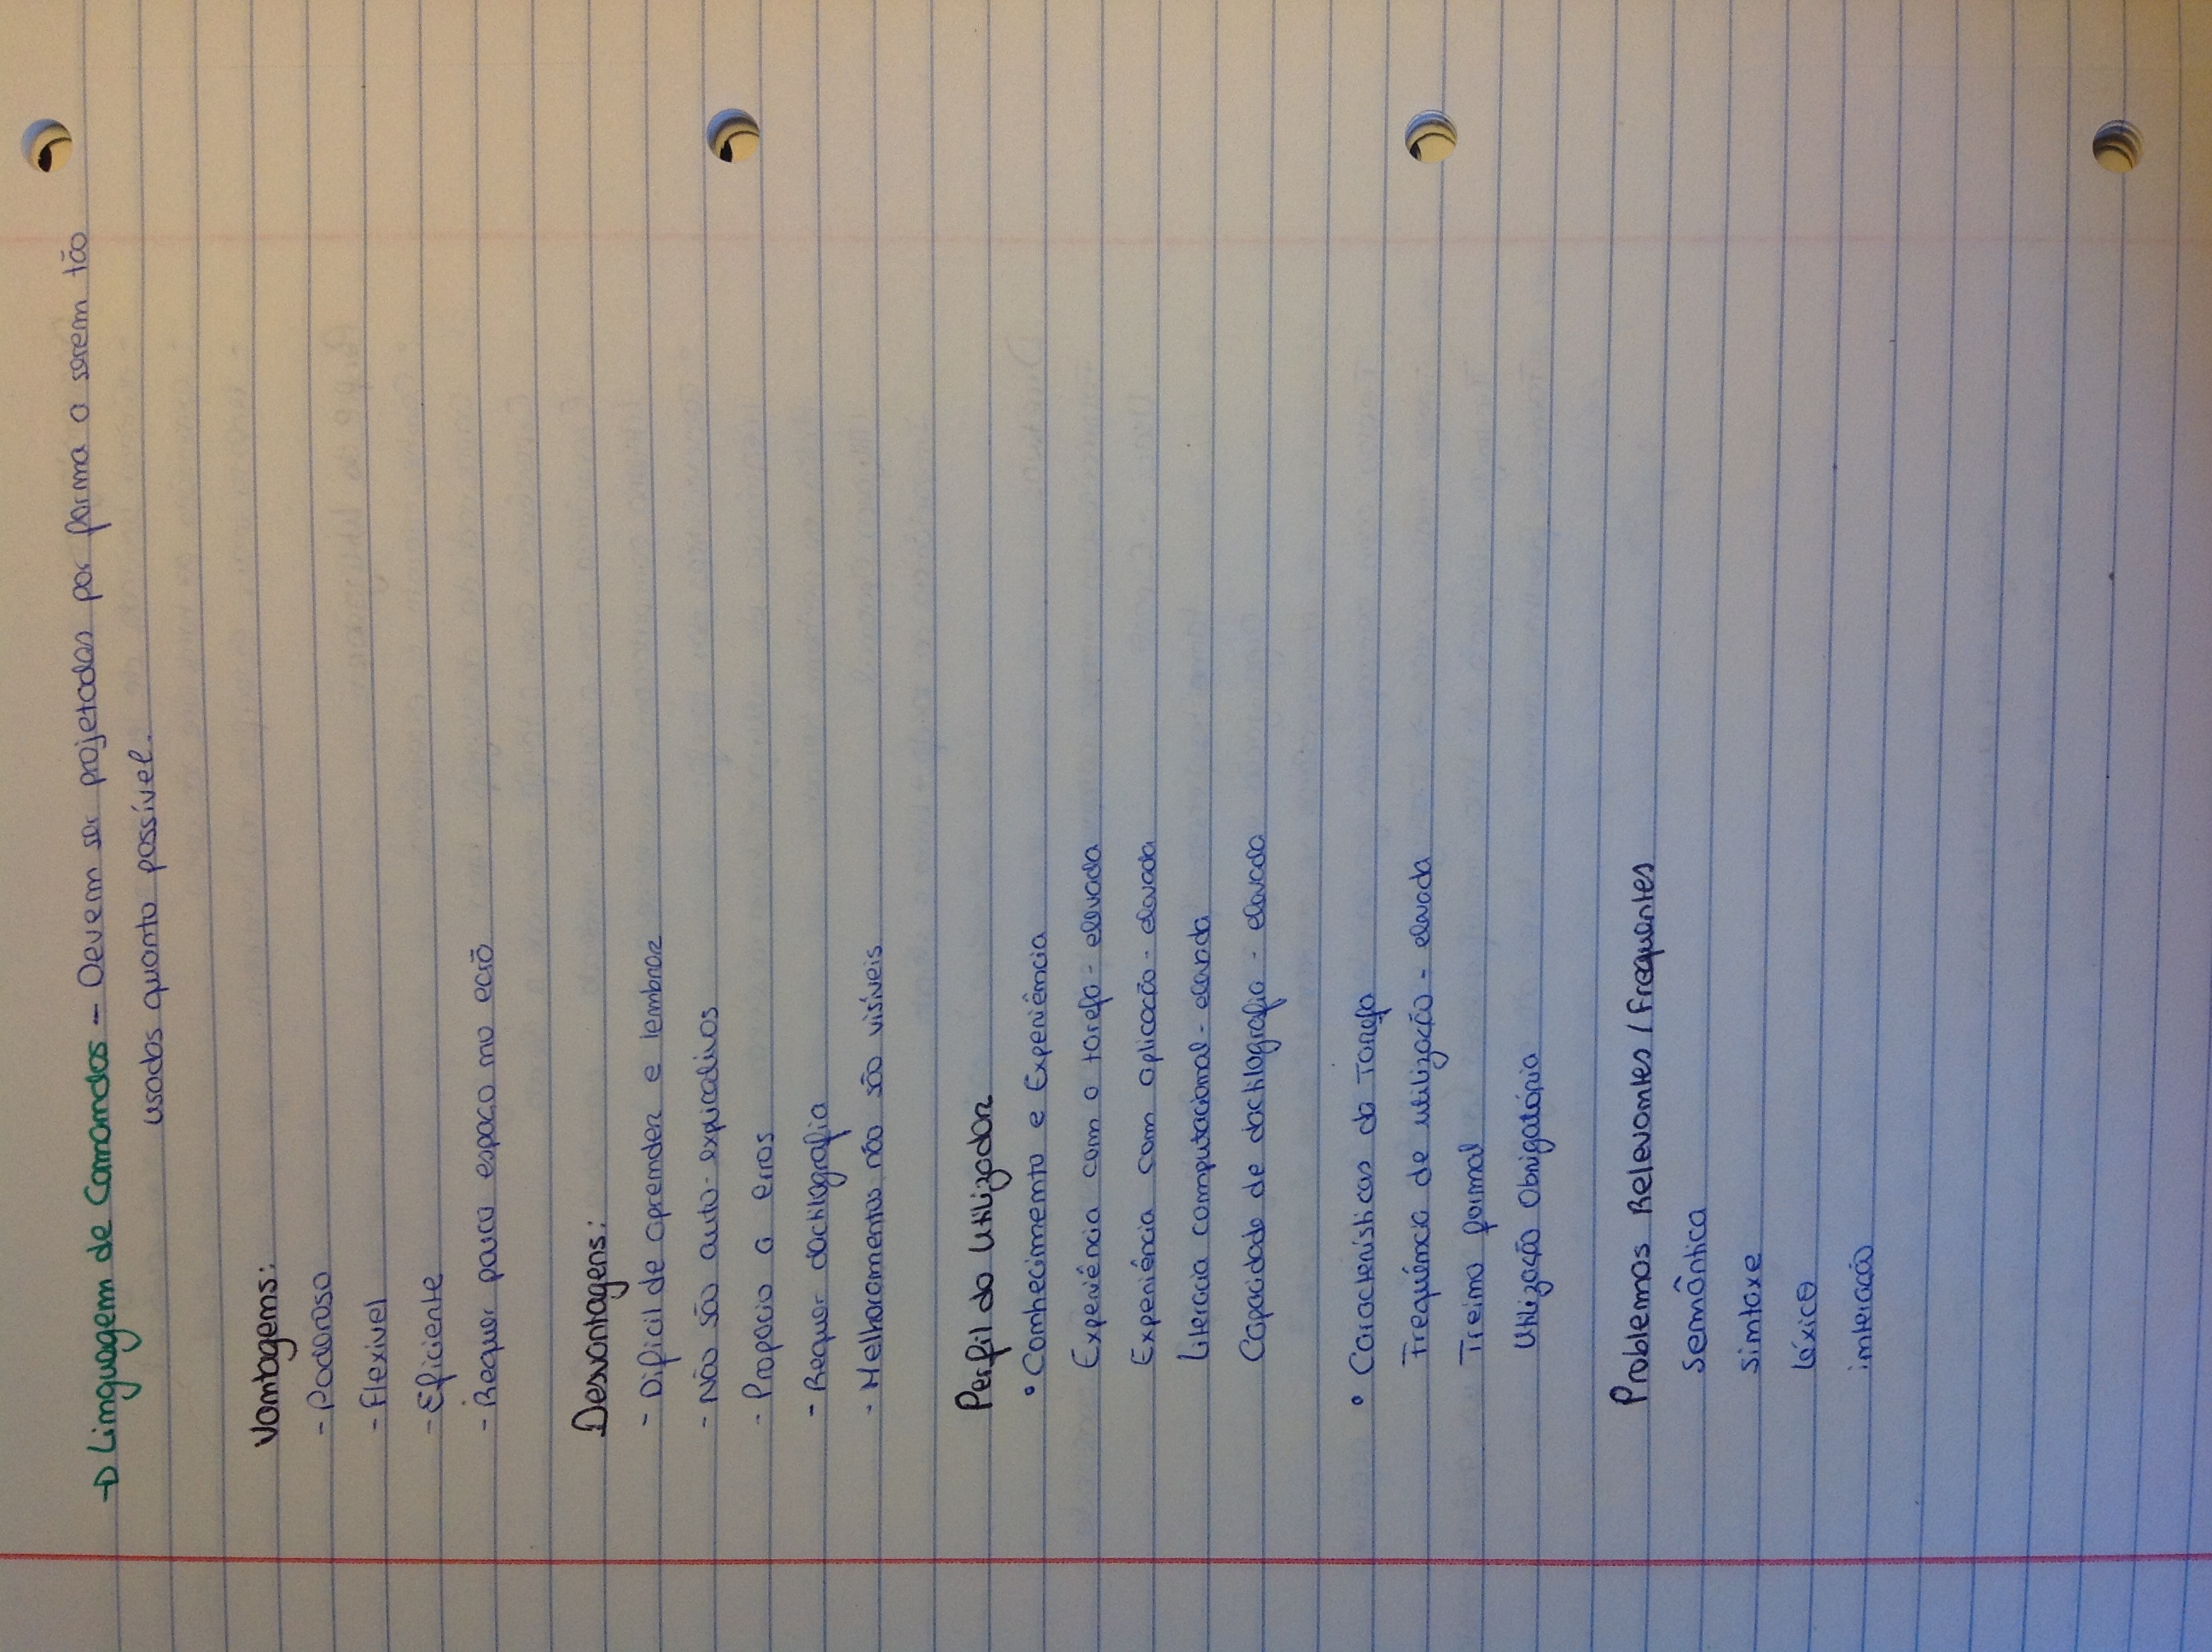 → Linguagem de Comandos - Devem ser projetadas por forma a serem tão
usados quanto possível.
Vantagens:
- Poderoso
- Flexivel
- Eficiente
- Requer pouco espaço no ecrã
Desvantagens:
- Dificil de aprender e lembrar
- Não são auto-explicativos
- Propocio a erros
- Requer dactilografia
- Melhoramentos não são visíveis
Perfil do Utilizador
• Conhecimento e Experiência
Experiência com a tarefa - elevada
Experiência com aplicação - elevada
Literacia computacional - elevada
Capacidade de dactilografia - elevada
• Características da Tarefa
Frequência de utilização - elevada
Treino formal
Utilização Obrigatória
Problemas Relevantes / Frequentes
Semântica
Sintaxe
Léxico
interação